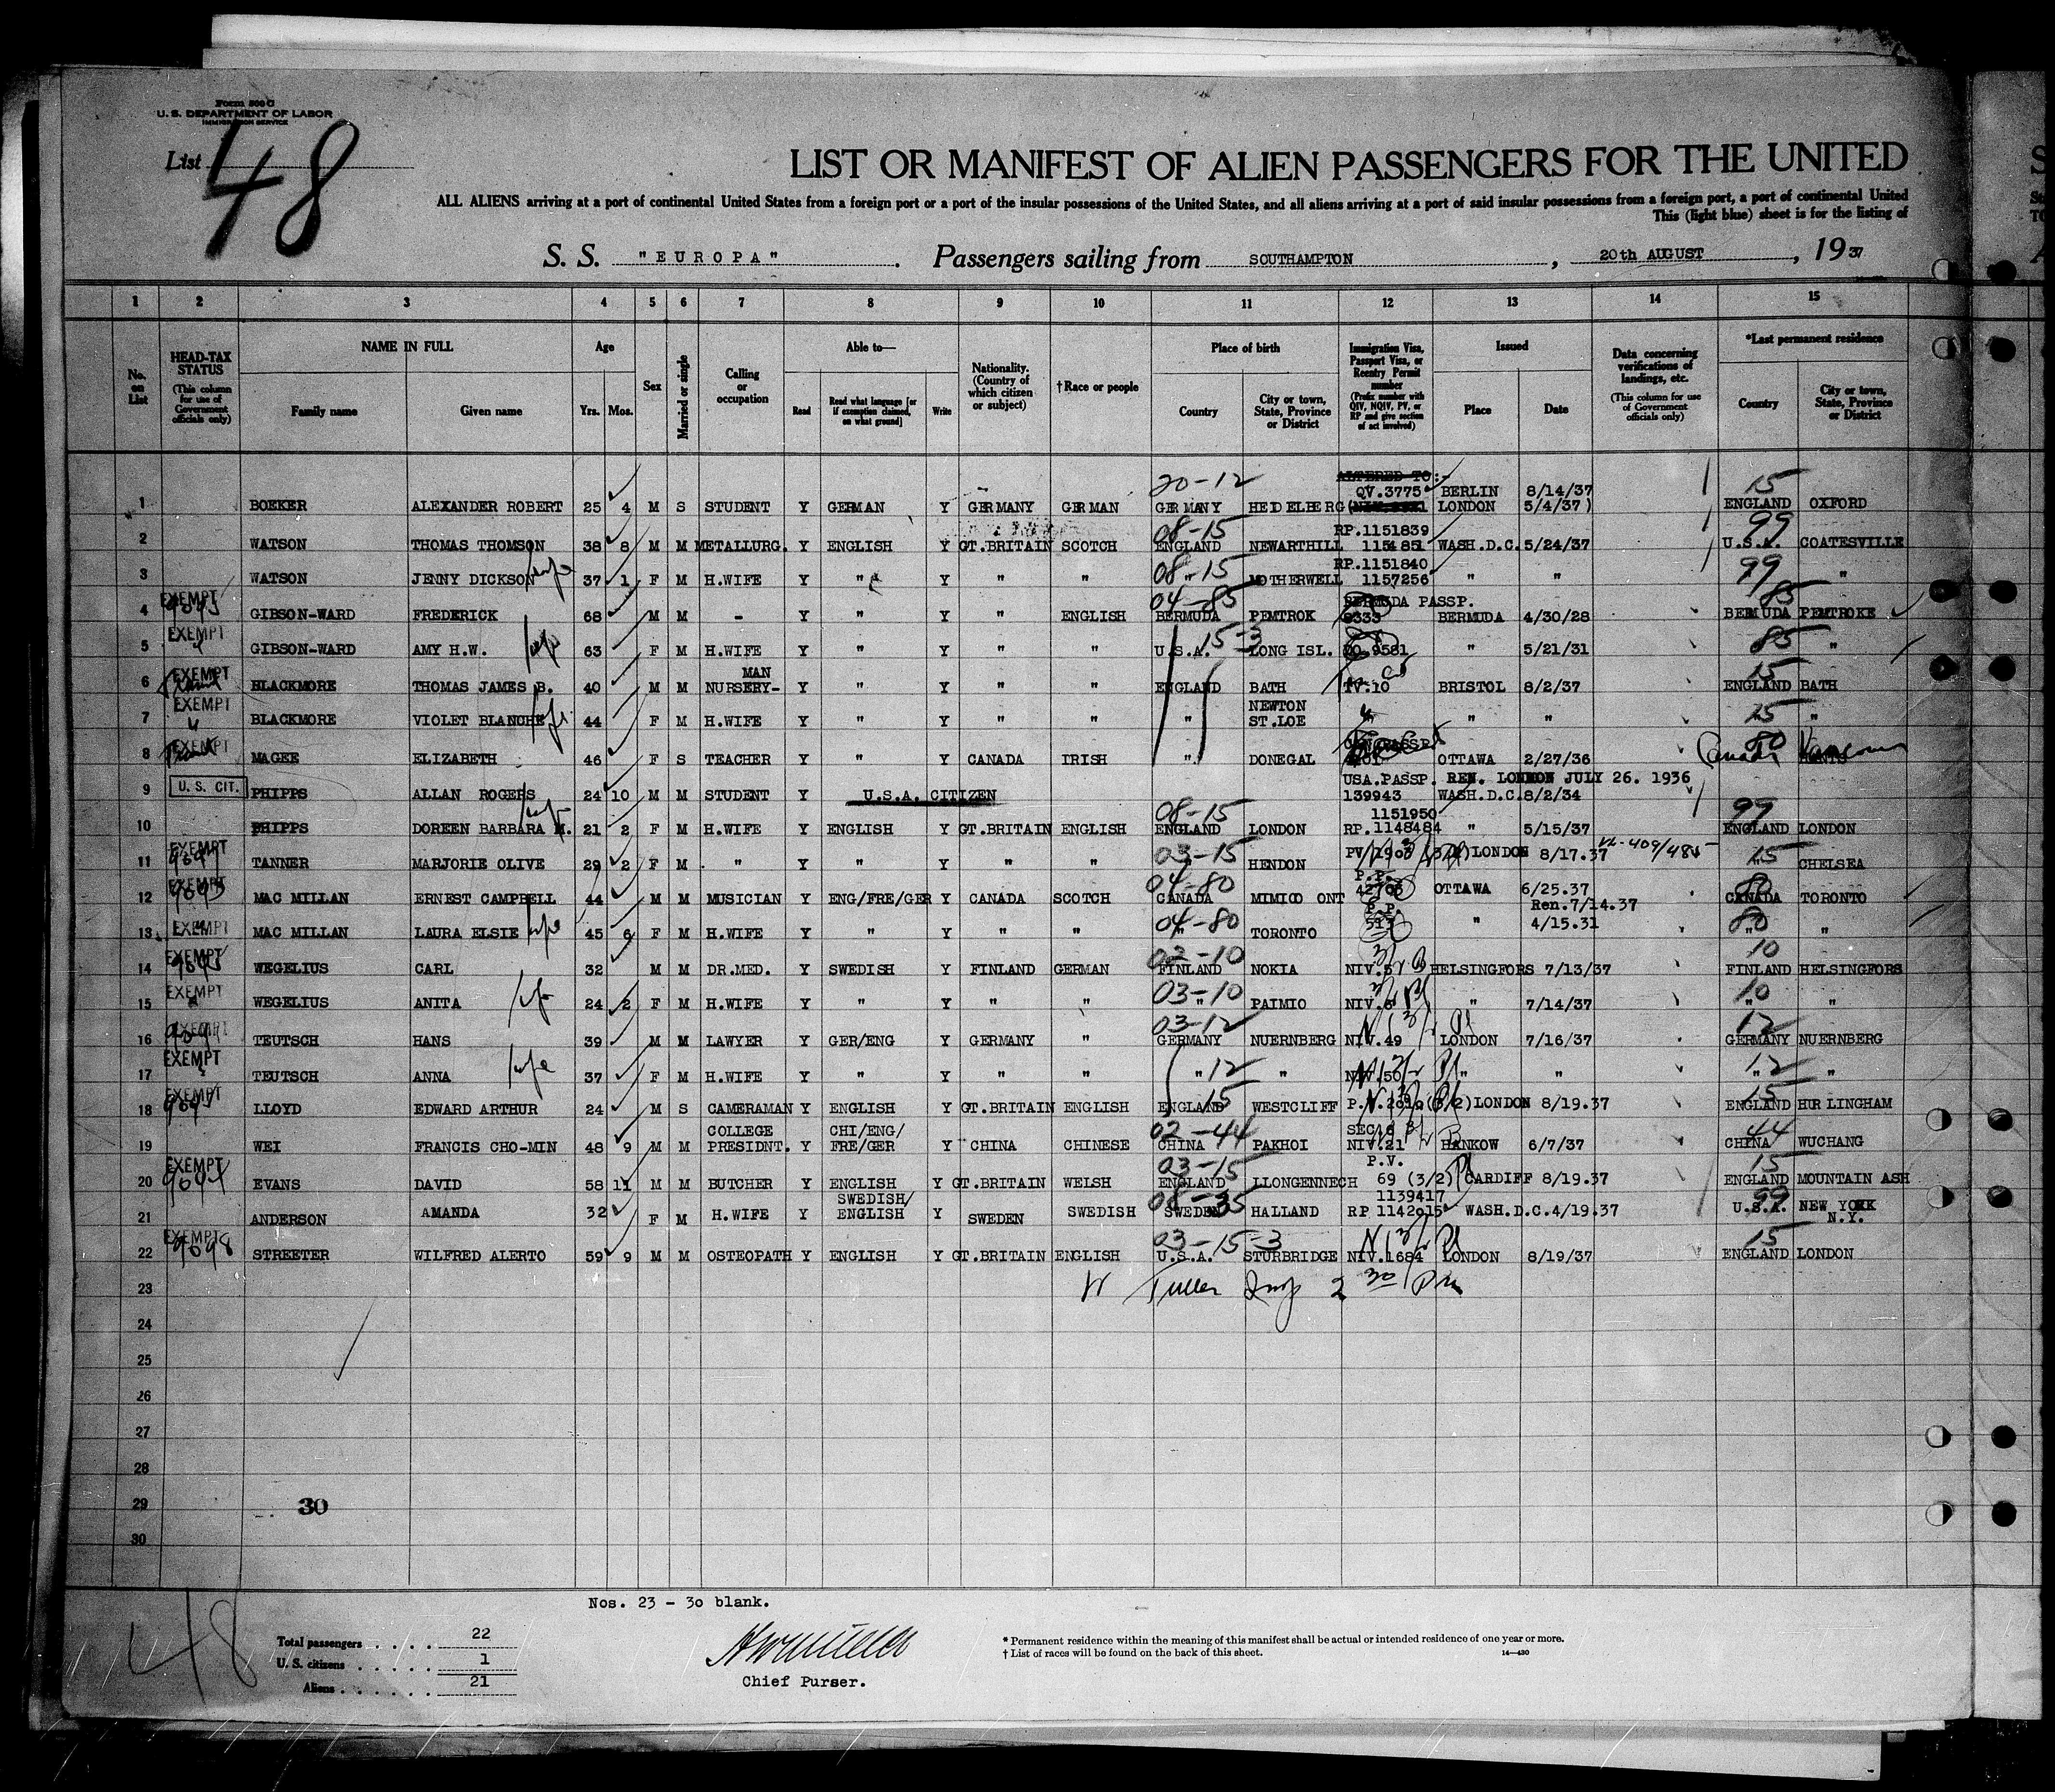 Form 500 C
U. S. DEPARTMENT OF LABOR
IMMIGRATION SERVICE
List 48
LIST OR MANIFEST OF ALIEN PASSENGERS FOR THE UNITED
ALL ALIENS arriving at a port of continental United States from a foreign port or a port of the insular possessions of the United States, and all aliens arriving at a port of said insular possessions from a foreign port, a port of continental United
This (light blue) sheet is for the listing of
S. S. "EUROPA" . Passengers sailing from SOUTHAMPTON , 20th AUGUST , 1937
1 2 3 4 5 6 7 8 9 10 11 12 13 14 15
No. on List
HEAD-TAX STATUS (This column for use of Government officials only)
NAME IN FULL Family name Given name
Age Yrs. Mos.
Sex
Married or single
Calling or occupation
Able to— Read Read what language [or if exemption claimed, on what ground] Write
Nationality. (Country of which citizen or subject)
†Race or people
Place of birth Country City or town, State, Province or District
Immigration Visa, Passport Visa, or Reentry Permit number (Prefix number with QIV, NQIV, PV, or RP and give section of act involved)
Issued Place Date
Data concerning verifications of landings, etc. (This column for use of Government officials only)
*Last permanent residence Country City or town, State, Province or District
20-12 ALTERED TO:- 15
1 BOEKER ALEXANDER ROBERT 25 4 M S STUDENT Y GERMAN Y GERMANY GERMAN GERMANY HEIDELBERG QV.3775 BERLIN 8/14/37 LONDON 5/4/37) ENGLAND OXFORD
08-15 RP.1151839 99
2 WATSON THOMAS THOMSON 38 8 M M METALLURG. Y ENGLISH Y GT.BRITAIN SCOTCH ENGLAND NEWARTHILL 115485 WASH.D.C. 5/24/37 U.S.A. COATESVILLE
08-15 RP.1151840 99
3 WATSON JENNY DICKSON wife 37 1 F M H.WIFE Y " Y " " " MOTHERWELL 1157256 " " "
EXEMPT 04-85 BERMUDA PASSP. 85
4 GIBSON-WARD FREDERICK 68 M M - Y " Y " ENGLISH BERMUDA PEMTROK 9333 BERMUDA 4/30/28 BERMUDA PEMTROKE
EXEMPT 15-3 85
5 GIBSON-WARD AMY H.W. wife 63 F M H.WIFE Y " Y " " U.S.A. LONG ISL. 9581 " 5/21/31 "
EXEMPT MAN 15
6 BLACKMORE THOMAS JAMES B. 40 M M NURSERY- Y " Y " " ENGLAND BATH TV.10 BRISTOL 8/2/37 ENGLAND BATH
EXEMPT NEWTON
7 BLACKMORE VIOLET BLANCHE wife 44 F M H.WIFE Y " Y " " " ST.LOE " " " 15 "
EXEMPT 80
8 MAGEE ELIZABETH 46 F S TEACHER Y " Y CANADA IRISH " DONEGAL OTTAWA 2/27/36 Canada Vancouver
USA.PASSP. REN. LONDON JULY 26. 1936
9 U. S. CIT. PHIPPS ALLAN ROGERS 24 10 M M STUDENT Y U.S.A. CITIZEN 139943 WASH.D.C. 8/2/34
08-15 1151950 99
10 PHIPPS DOREEN BARBARA M. wife 21 2 F M H.WIFE Y ENGLISH Y GT.BRITAIN ENGLISH ENGLAND LONDON RP.1148484 " 5/15/37 ENGLAND LONDON
EXEMPT 03-15
11 TANNER MARJORIE OLIVE 29 2 F M " Y " Y " " HENDON LONDON 8/17.37 15 CHELSEA
EXEMPT 04-80 P.P. 80
12 MAC MILLAN ERNEST CAMPBELL 44 M M MUSICIAN Y ENG/FRE/GER Y CANADA SCOTCH CANADA MIMICO ONT OTTAWA 6/25.37 CANADA TORONTO
Ren.7/14.37
EXEMPT 04-80 P.P. 80
13 MAC MILLAN LAURA ELSIE wife 45 6 F M H.WIFE Y " Y " " " TORONTO 513 " 4/15.31 " "
EXEMPT 02-10 10
14 WEGELIUS CARL 32 M M DR.MED. Y SWEDISH Y FINLAND GERMAN FINLAND NOKIA NIV.5 HELSINGFORS 7/13/37 FINLAND HELSINGFORS
EXEMPT 03-10 10
15 WEGELIUS ANITA wife 24 2 F M H.WIFE Y " Y " " " PAIMIO NIV.6 " 7/14/37 " "
EXEMPT 03-12 12
16 TEUTSCH HANS 39 M M LAWYER Y GER/ENG Y GERMANY " GERMANY NUERNBERG NIV.49 LONDON 7/16/37 GERMANY NUERNBERG
EXEMPT 12 12
17 TEUTSCH ANNA wife 37 F M H.WIFE Y " Y " " " " NIV.50 " " " "
EXEMPT 15 15
18 LLOYD EDWARD ARTHUR 24 M S CAMERAMAN Y ENGLISH Y GT.BRITAIN ENGLISH ENGLAND WESTCLIFF LONDON 8/19.37 ENGLAND HURLINGHAM
COLLEGE CHI/ENG/ 02-44 44
19 WEI FRANCIS CHO-MIN 48 9 M M PRESIDNT. Y FRE/GER Y CHINA CHINESE CHINA PAKHOI NIV.21 HANKOW 6/7/37 CHINA WUCHANG
EXEMPT 03-15 P.V. 15
20 EVANS DAVID 58 11 M M BUTCHER Y ENGLISH Y GT.BRITAIN WELSH ENGLAND LLONGENNECH 69 (3/2) CARDIFF 8/19.37 ENGLAND MOUNTAIN ASH
SWEDISH/ 1139417 99
21 ANDERSON AMANDA 32 F M H.WIFE Y ENGLISH Y SWEDEN SWEDISH SWEDEN HALLAND RP 1142015 WASH.D.C. 4/19.37 U.S.A. NEW YORK N.Y.
EXEMPT 9098 03-15-3 15
22 STREETER WILFRED ALERTO 59 9 M M OSTEOPATH Y ENGLISH Y GT.BRITAIN ENGLISH U.S.A. STURBRIDGE NIV.1684 LONDON 8/19/37 ENGLAND LONDON
23 Fuller Insp 2 30 PM
24
25
26
27
28
29 30
30
Nos. 23 - 30 blank.
48
Total passengers . . . . 22
U. S. citizens . . . . . 1
Aliens . . . . . . 21
Chief Purser.
* Permanent residence within the meaning of this manifest shall be actual or intended residence of one year or more.
† List of races will be found on the back of this sheet.
14—430